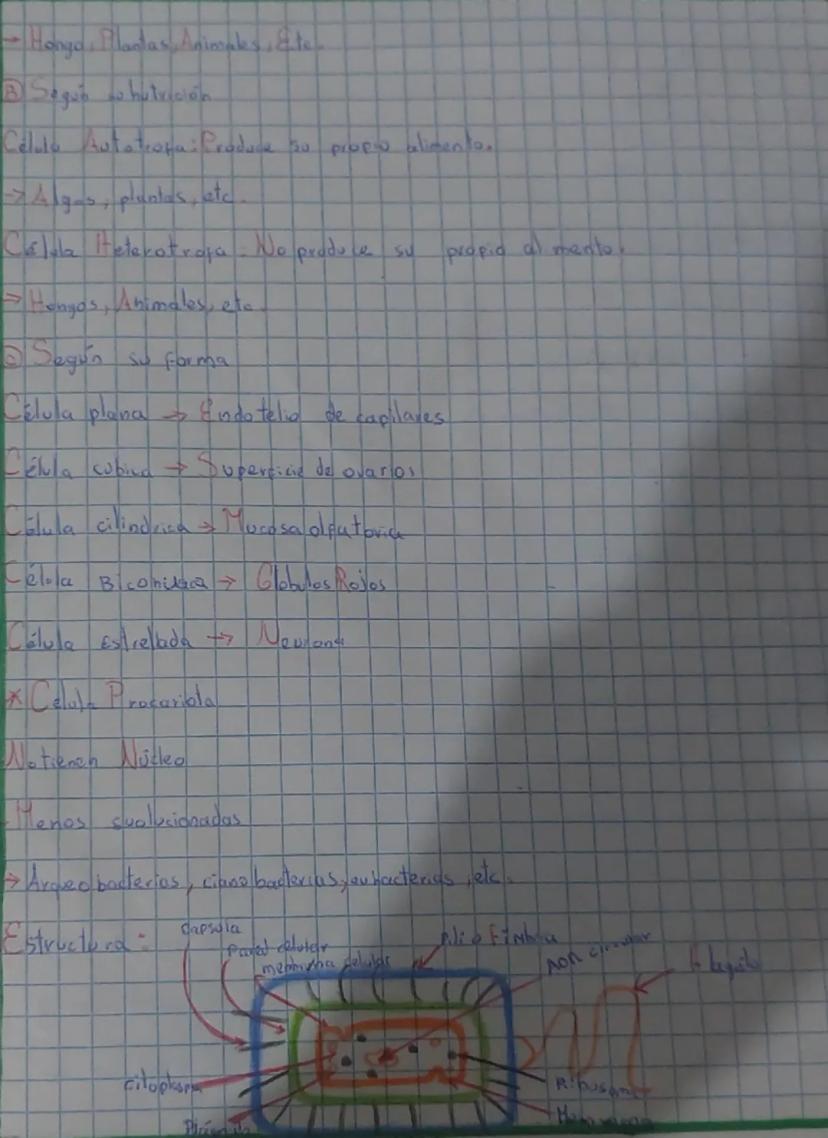 → Hongo, Plantas, Animales, Etc.
B Según su nutrición
Célula Autotrofa: Produce su propio alimento.
→ Algas, plantas, etc.
Célula Heterotrofa: No produce su propio alimento.
→ Hongos, Animales, etc.
C Según su forma
Célula plana → Endotelio de capilares
Célula cubica → Superficie de ovarios
Célula cilindrica → Mucosa olfatoria
Célula Biconcava → Globulos Rojos
Célula Estrellada → Neurona
* Celula Procariota
No tienen Núcleo
Menos evolucionadas
→ Arqueobacterias, cianobacterias, eubacterias, etc.
Estructura:
Capsula
Pared celular
membrana celular
Pili o Fimbria
ADN circular
Flagelo
Citoplasma
Ribosoma
Plásmido